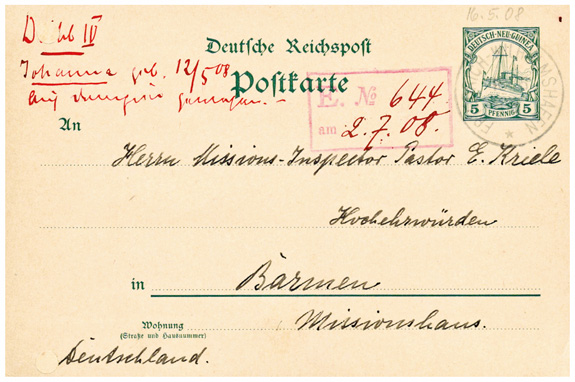 16.5.08
IV
Johanna geb. 12/5 08
Deutsche Reichspost
Postkarte
DEUTSCH-NEU-GUINEA
5 PFENNIG 5
E. № 644
am 2.7.08.
An
Herrn Missions-Inspector Pastor E. Kriele
Hochehrwürden
in Barmen
Wohnung
(Straße und Hausnummer)
Missionshaus.
Deutschland.